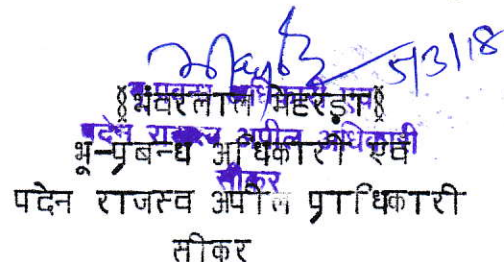 5/3/18
§भंवरलाल मेहरड़ा§
भू-प्रबन्ध अधिकारी एवं
पदेन राजस्व अपील अधिकारी
सीकर
पदेन राजस्व अपील प्राधिकारी
सीकर